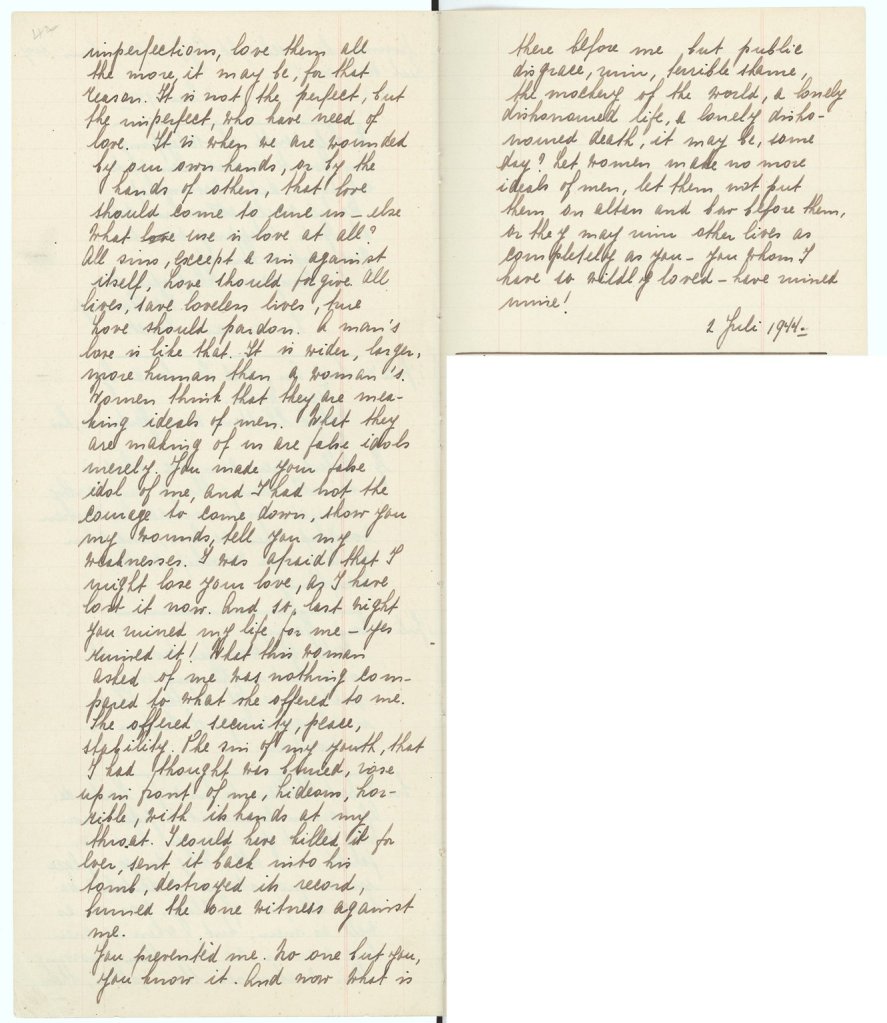 42
imperfections, love them all
the more, it may be, for that
reason. It is not the perfect, but
the imperfect, who have need of
love. It is when we are wounded
by our own hands, or by the
hands of others, that love
should come to cure us – else
what love use is love at all?
All sins, except a sin against
itself, Love should forgive. All
lives, save loveless lives, true
Love should pardon. A man's
love is like that. It is wider, larger,
more human than a woman's.
Women think that they are mea-
king ideals of men. What they
are making of us are false idols
merely. You made your false
idol of me, and I had not the
courage to come down, show you
my wounds, tell you my
weaknesses. I was afraid that I
might lose your love, as I have
lost it now. And so, last night
you ruined my life for me – yes
ruined it! What this woman
asked of me was nothing com-
pared to what she offered to me.
She offered security, peace,
stability. The sin of my youth, that
I had thought was buried, rose
up in front of me, hideous, hor-
rible, with its hands at my
throat. I could have killed it for
ever, sent it back into his
tomb, destroyed its record,
burned the one witness against
me.
You prevented me. No one but you,
you know it. And now what is
there before me but public
disgrace, ruin, terrible shame,
the mockery of the world, a lonely
dishonoured life, a lonely disho-
noured death, it may be, some
day? Let women make no more
ideals of men, let them not put
them on altars and bow before them,
or they may ruin other lives as
completely as you – you whom I
have so wildly loved – have ruined
mine!
2 Juli 1944.